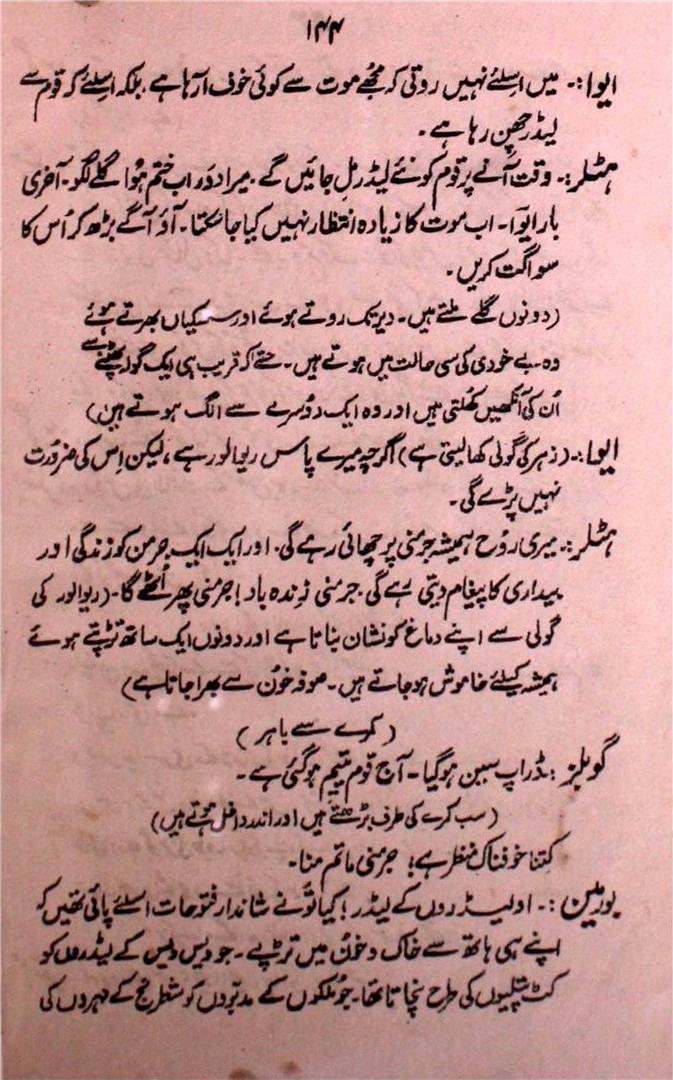 ۱۴۴
ایوا:۔ میں اسلئے نہیں روتی کہ مجھے موت سے کوئی خوف آرہا ہے بلکہ اسلئے کہ قوم سے
لیڈر چھن رہا ہے۔
ہٹلر:۔ وقت آنے پر قوم کو نئے لیڈر مل جائیں گے۔ میرا دَور اب ختم ہُوا گلے لگو۔ آخری
بار ایوا۔ اب موت کا زیادہ انتظار نہیں کیا جا سکتا۔ آؤ آگے بڑھ کر اُس کا
سواگت کریں۔
(دونوں گلے ملتے ہیں۔ دیر تک روتے ہوئے اور سسکیاں بھرتے ہوئے
وہ بے خودی کی سی حالت میں ہوتے ہیں۔ حتےٰ کہ قریب ہی ایک گولہ پھٹنے سے
اُن کی آنکھیں کھلتی ہیں اور وہ ایک دُوسرے سے الگ ہوتے ہیں)
ایوا:۔ (زہر کی گولی کھا لیتی ہے) اگرچہ میرے پاس ریوالور ہے، لیکن اِس کی ضرورت
نہیں پڑے گی۔
ہٹلر:۔ میری رُوح ہمیشہ جرمنی پر چھائی رہے گی۔ اور ایک ایک جرمن کو زندگی اور
بیداری کا پیغام دیتی رہے گی۔ جرمنی زندہ باد! جرمنی پھر اُٹھے گا۔ (ریوالور کی
گولی سے اپنے دماغ کو نشان بناتا ہے اور دونوں ایک ساتھ تڑپتے ہوئے
ہمیشہ کیلئے خاموش ہو جاتے ہیں۔ صوفہ خون سے بھرا جاتا ہے)
(کمرے سے باہر)
گوبلز:۔ ڈراپ سین ہو گیا۔ آج قوم یتیم ہو گئی ہے۔
(سب کمرے کی طرف بڑھتے ہیں اور اندر داخل ہوتے ہیں)
کتنا خوفناک منظر ہے! جرمنی ماتم منا۔
بورمین:۔ او لیڈروں کے لیڈر! کیا تُو نے شاندار فتوحات اسلئے پائی تھیں کہ
اپنے ہی ہاتھ سے خاک و خون میں تڑپے۔ جو دیس دیس کے لیڈروں کو
کٹ پتلیوں کی طرح نچاتا تھا۔ جو ملکوں کے مدبّروں کو شطرنج کے مہروں کی